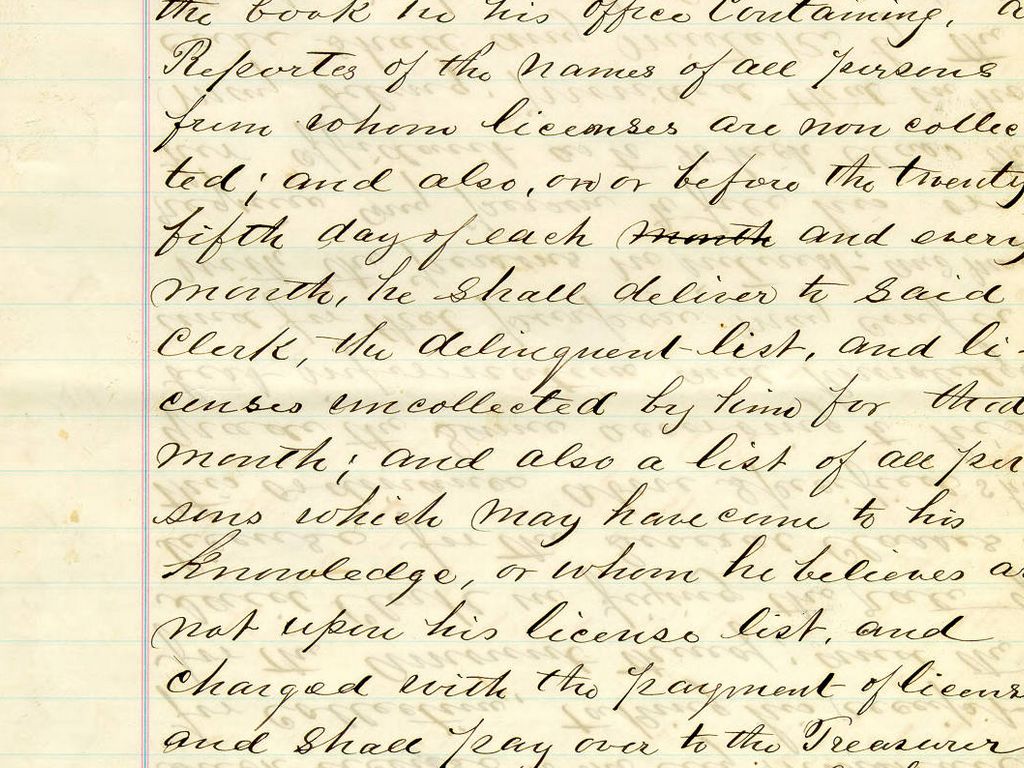 the book in his office containing, a
Reportes of the names of all persons
from whom licenses are non collec
ted; and also, on or before the twenty
fifth day of each ~~month~~ and every
month, he shall deliver to said
Clerk, the delinquent list, and li-
censes uncollected by him for that
month; and also a list of all per
sons which may have come to his
knowledge, or whom he believes a
not upon his license list, and
charged with the payment of licens
and shall pay over to the Treasurer